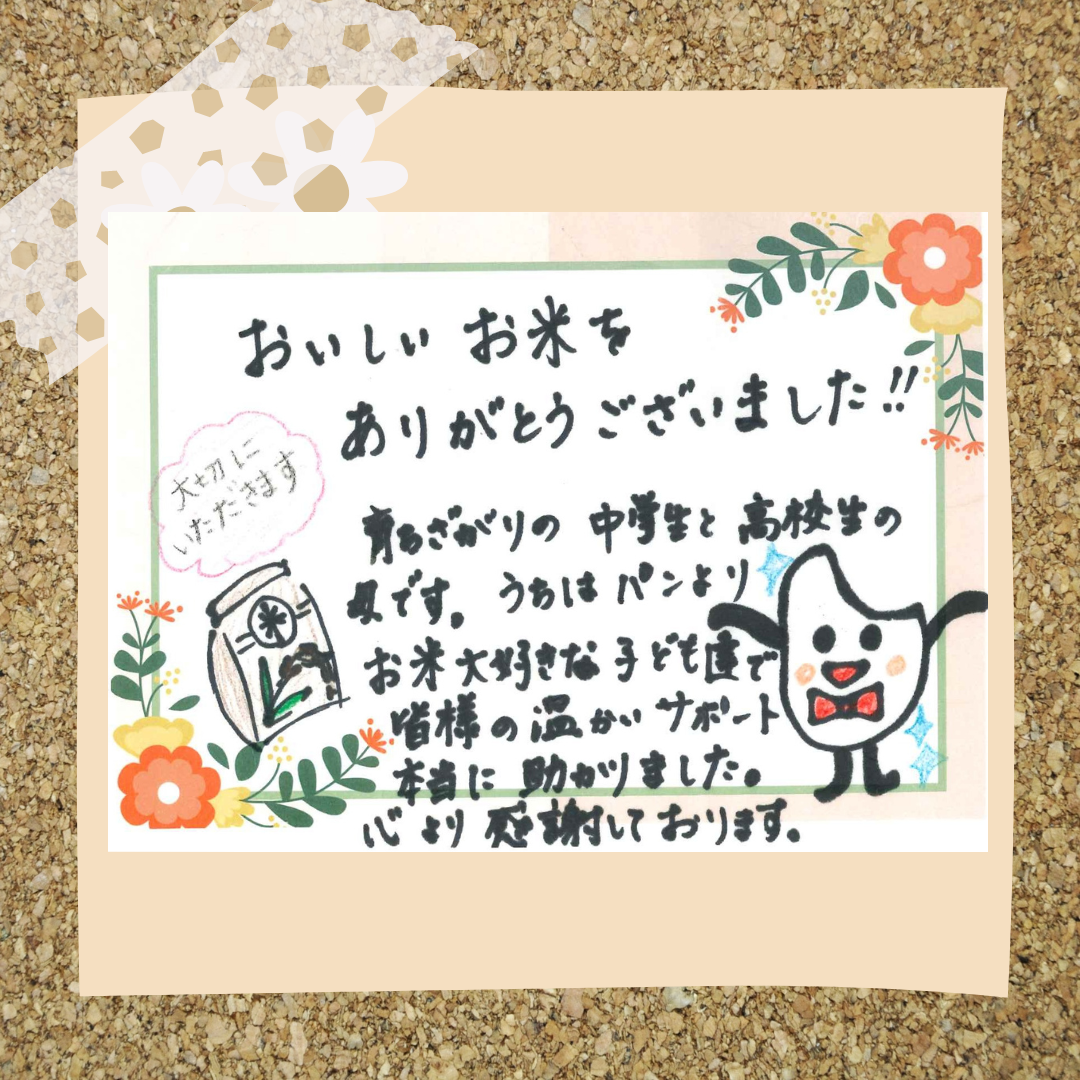 おいしい お米を
ありがとうございました!!
大切に
いただきます
育ちざかりの 中学生と 高校生の
母です。うちは パンより
お米大好きな 子ども達で
皆様の温かい サポート
本当に 助かりました。
心より 感謝しております。
米